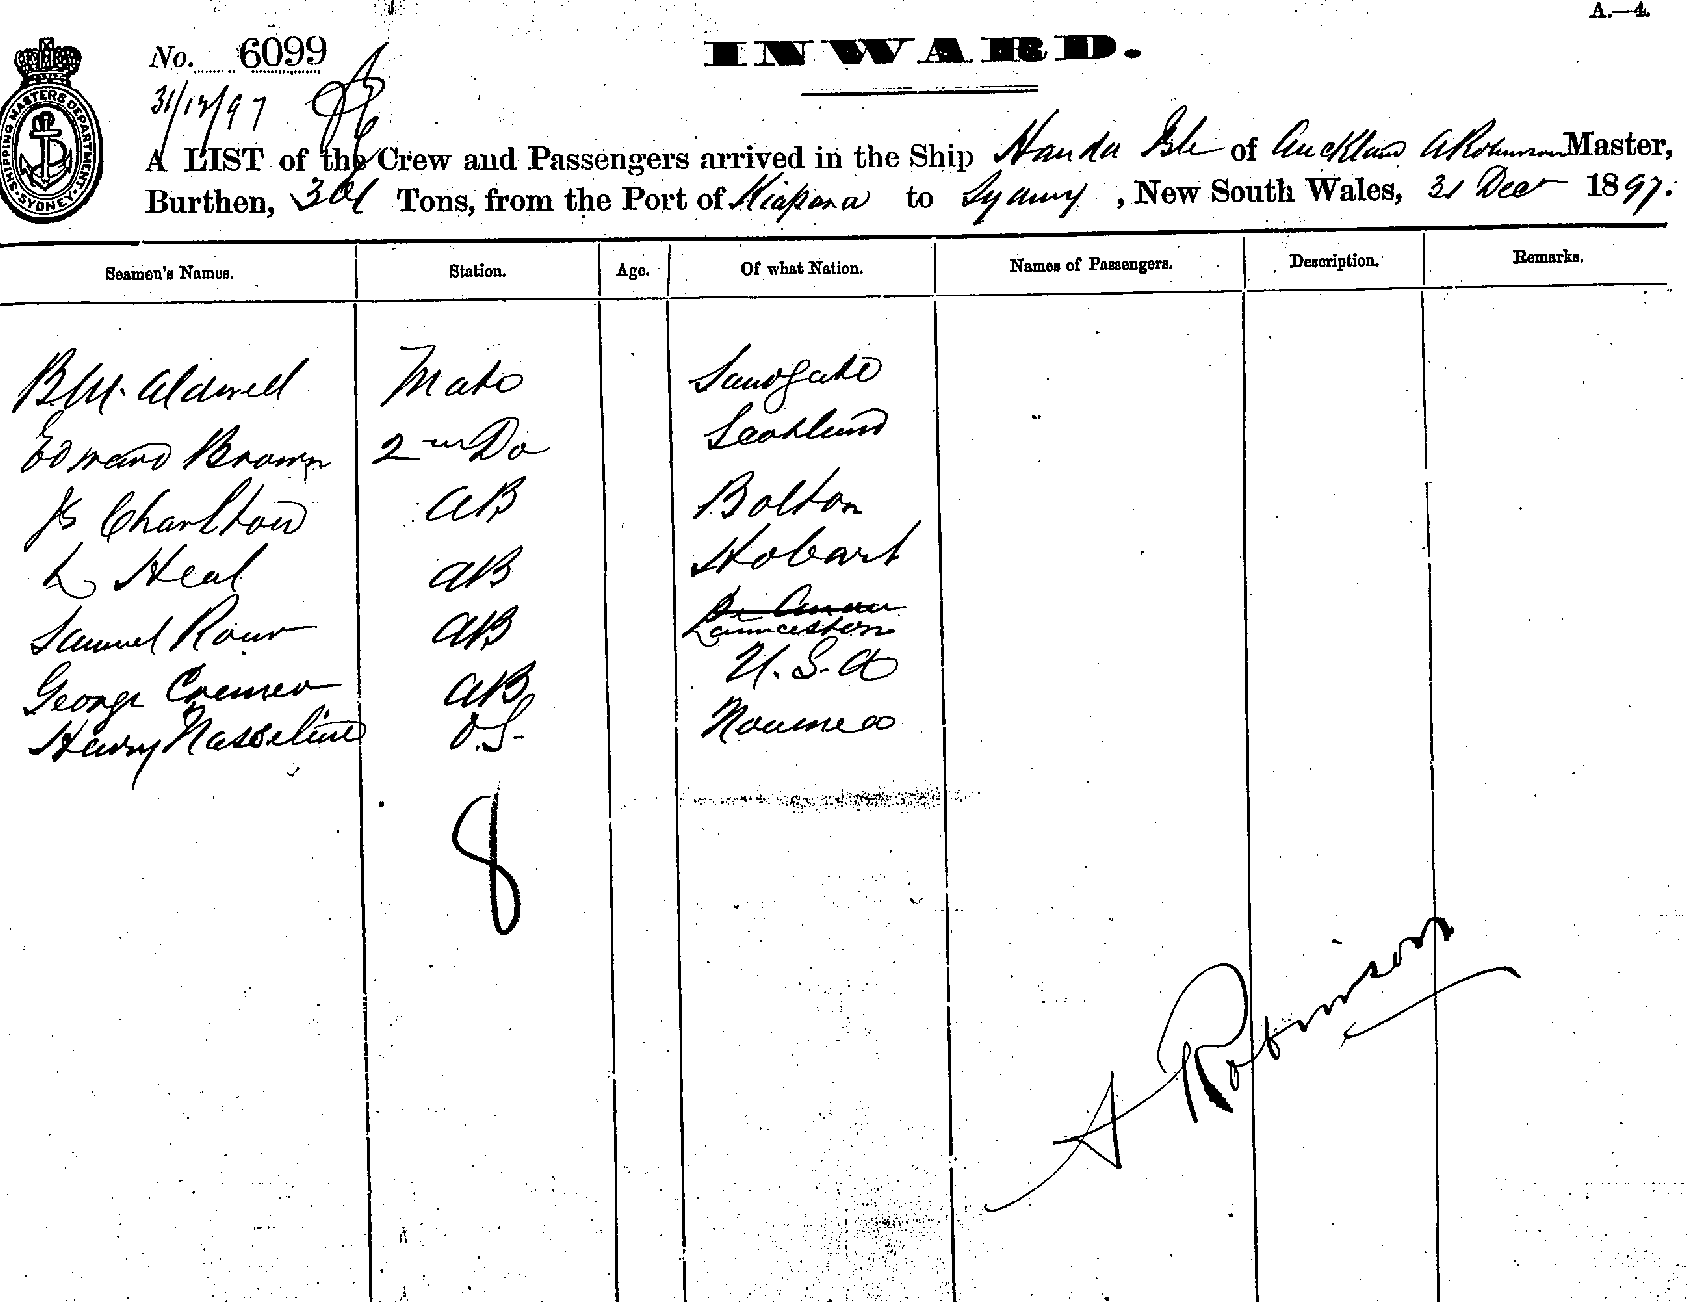 A.—4.
No. 6099
INWARD.
31/12/97
SHIPPING MASTERS DEPARTMENT SYDNEY
A LIST of the Crew and Passengers arrived in the Ship Handa Isle of Auckland A Robinson Master,
Burthen, Tons, from the Port of Kiapara to Sydney, New South Wales, 31 Decr 1897.
Seamen's Names. Station. Age. Of what Nation. Names of Passengers. Description. Remarks.
Mate Sandgate
Edward Brown 2nd Do Scotland
Js Charlton AB Bolton
L Heal AB Hobart
Samuel AB Launceston
George Cremer AB U.S.A
Henry O.S. Noumea
8
A Robinson